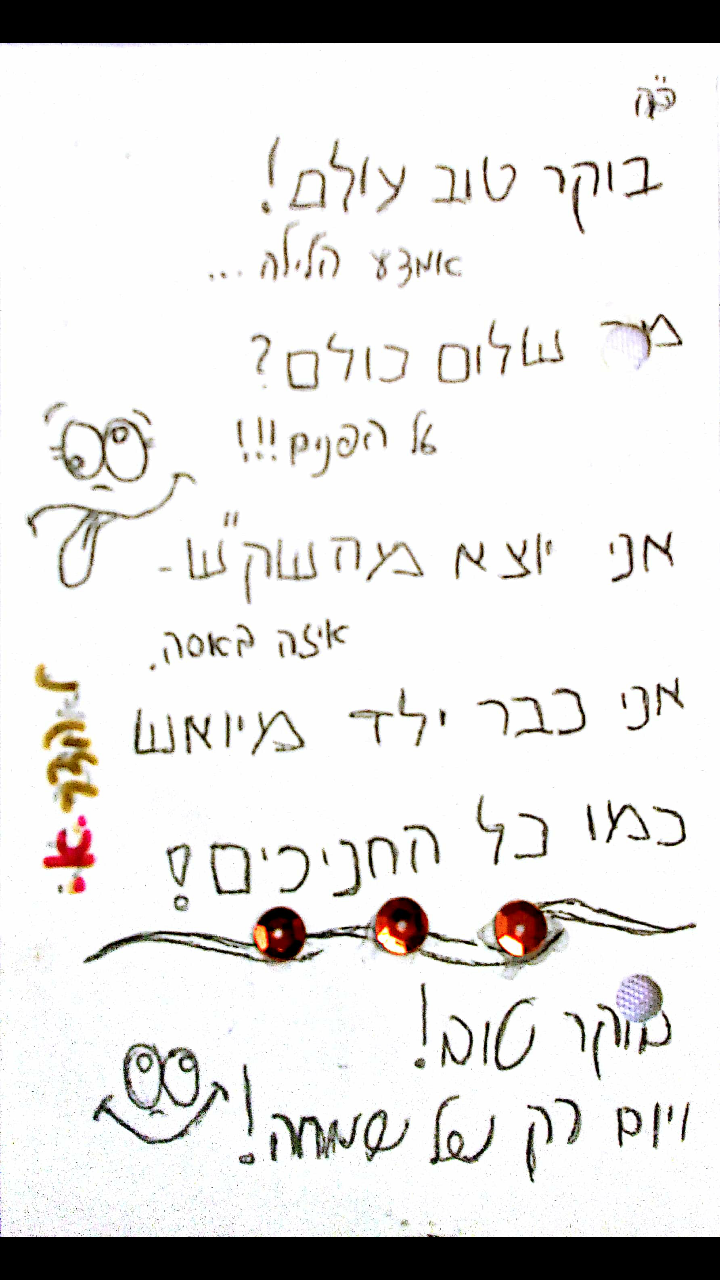 ב"ה
בוקר טוב עולם!
אמצע הלילה...
מר שלום כולם?
על הפנים!!!
אני יוצא מהשק"ש -
איזה באסה.
אני כבר ילד מיואש
כמו כל החניכים!
בוקר טוב!
ויום רק של שמחה!